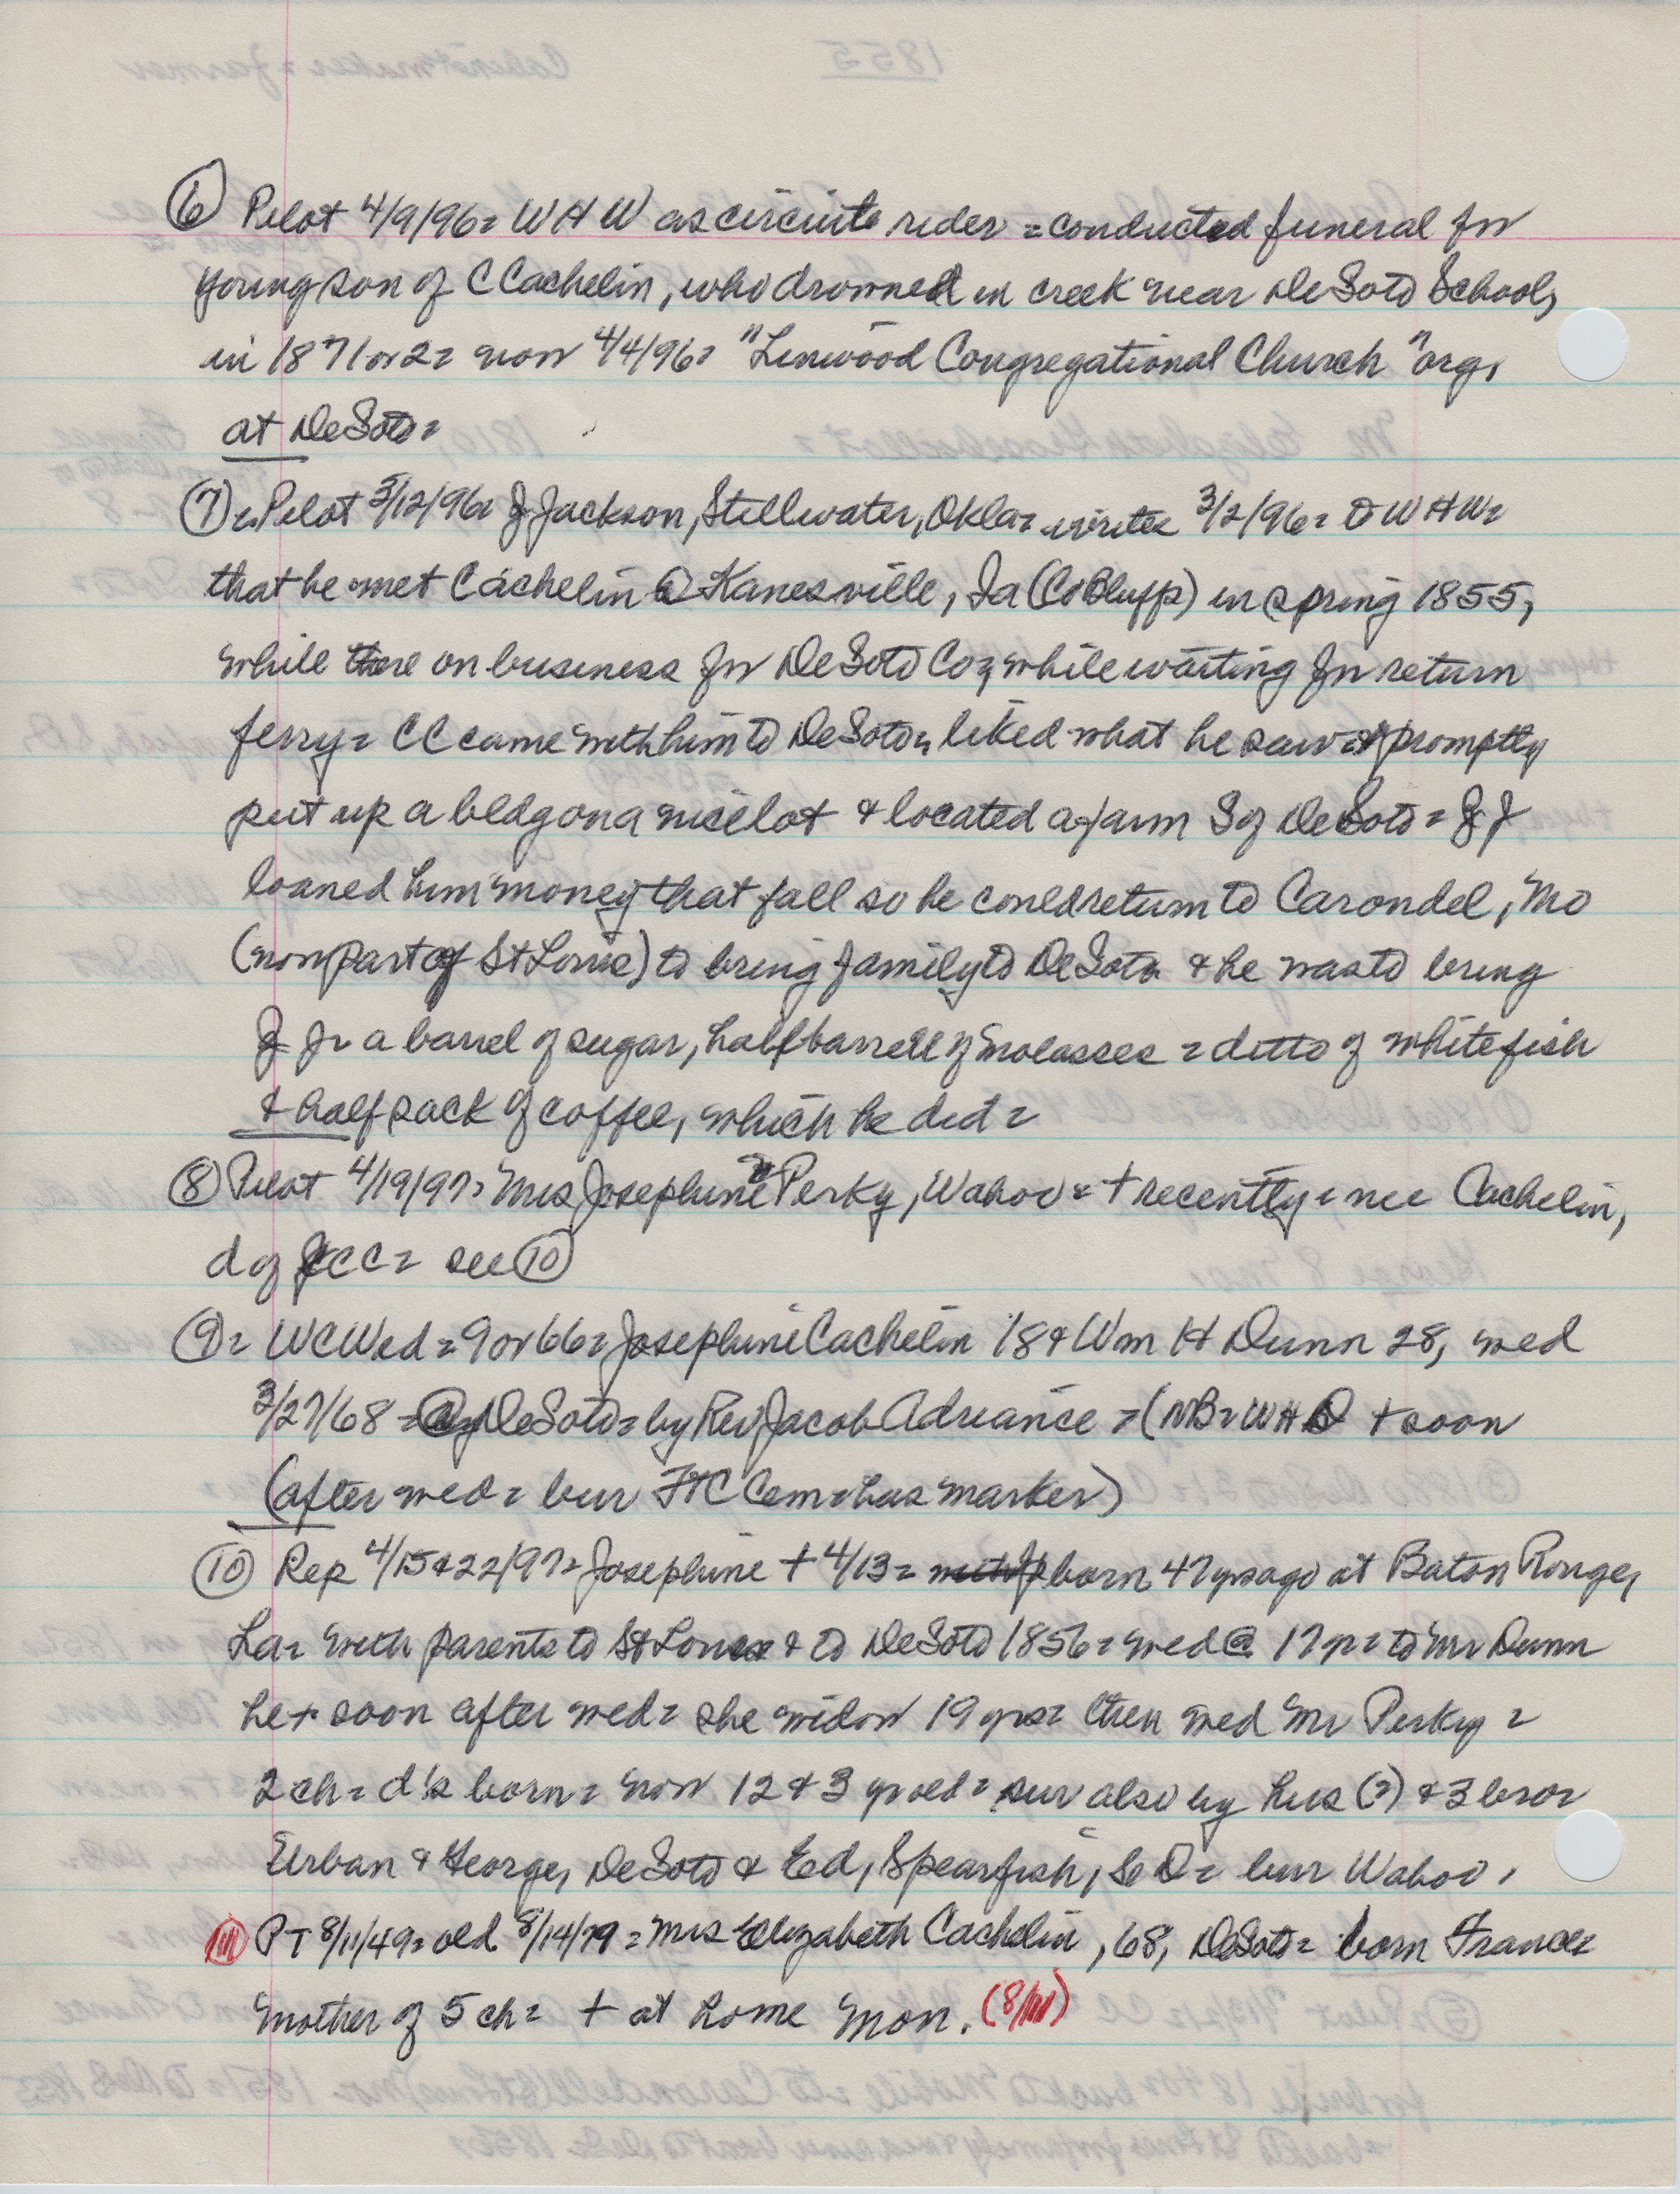 ⑥ Pilot 4/9/96= W H W as circuit rider = conducted funeral for
young son of C Cachelin, who drowned in creek near DeSoto School,
in 1871 or 2= now 4/4/96= "Linwood Congregational Church" org,
at DeSoto=
⑦= Pilot 3/12/96= J Jackson, Stillwater, Okla= writes 3/2/96= to W H W=
that he met Cachelin @ Kanesville, Ia (Co Bluffs) in spring 1855,
while there on business for DeSoto Co, while waiting for return
ferry= CC came with him to DeSoto, liked what he saw & promptly
put up a bldg on a nice lot & located a farm S of DeSoto = J J
loaned him money that fall so he could return to Carondel, Mo
(now part of St Louis) to bring family to DeSoto & he was to bring
J J= a barrel of sugar, half barrell of molasses = ditto of whitefish
& half sack of coffee, which he did=
⑧ Pilot 4/19/97= Mrs Josephine Perky, Wahoo= + recently= nee Cachelin,
d of CC= see ⑩
⑨= WCWed= 9 or 66= Josephine Cachelin 18 & Wm H Dunn 28, wed
3/27/68 = @ DeSoto= by Rev Jacob Adriance =(NB= W H D + soon
(after wed= bur FtC Cem= has marker)
⑩ Rep 4/15&22/97= Josephine + 4/13= born 47 yrs ago at Baton Rouge,
La= with parents to St Louis & to DeSoto 1856= wed @ 17 yr= to Mr Dunn
he + soon after wed= she widow 19 yrs= then wed Mr Perky =
2 ch= d's born= now 12 & 3 yr old= sur also by hus (?) & 3 bro=
Urban & George, DeSoto & Ed, Spearfish, So D= bur Wahoo,
⑪ PT 8/11/49= old 8/14/79 = Mrs Elizabeth Cachelin, 68, DeSoto= born France=
mother of 5 ch= + at home Mon. (8/11)